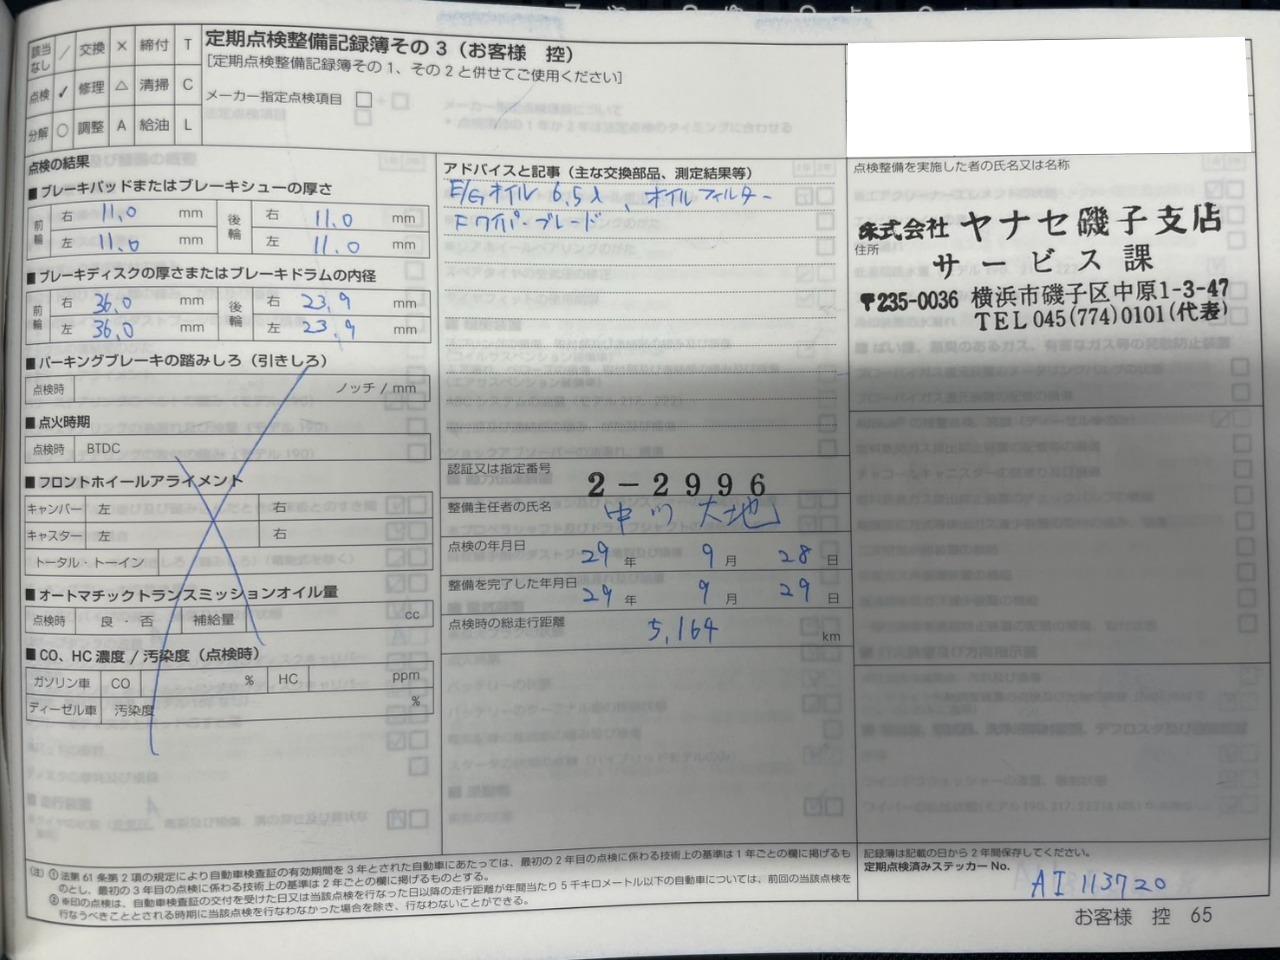 該当なし / 交換 × 締付 T
点検 ✓ 修理 △ 清掃 C
分解 ○ 調整 A 給油 L
定期点検整備記録簿その3（お客様 控）
[定期点検整備記録簿その1、その2と併せてご使用ください]
メーカー指定点検項目 □
点検の結果
■ブレーキパッドまたはブレーキシューの厚さ
前輪 右 11.0 mm 後輪 右 11.0 mm
左 11.0 mm 左 11.0 mm
■ブレーキディスクの厚さまたはブレーキドラムの内径
前輪 右 36.0 mm 後輪 右 23.9 mm
左 36.0 mm 左 23.9 mm
■パーキングブレーキの踏みしろ（引きしろ）
点検時 ノッチ / mm
■点火時期
点検時 BTDC
■フロントホイールアライメント
キャンバー 左 右
キャスター 左 右
トータル・トーイン
■オートマチックトランスミッションオイル量
点検時 良・否 補給量 cc
■CO、HC濃度 / 汚染度（点検時）
ガソリン車 CO % HC ppm
ディーゼル車 汚染度 %
アドバイスと記事（主な交換部品、測定結果等）
E/Gオイル 6.5ℓ オイルフィルター
Fワイパーブレード
認証又は指定番号
2-2996
整備主任者の氏名
中川 大地
点検の年月日
29年 9月 28日
整備を完了した年月日
29年 9月 29日
点検時の総走行距離
5,164 km
点検整備を実施した者の氏名又は名称
株式会社 ヤナセ磯子支店
住所
サービス課
〒235-0036 横浜市磯子区中原1-3-47
TEL 045(774)0101(代表)
記録簿は記載の日から2年間保存してください。
定期点検済みステッカー No.
AI 113720
(注) ①法第61条第2項の規定により自動車検査証の有効期間を3年とされた自動車にあたっては、最初の2年目の点検に係わる技術上の基準は1年ごとの欄に掲げるも
のとし、最初の3年目の点検に係わる技術上の基準は2年ごとの欄に掲げるものとする。
②※印の点検は、自動車検査証の交付を受けた日又は当該点検を行なった日以降の走行距離が年間当たり5千キロメートル以下の自動車については、前回の当該点検を
行なうべきこととされる時期に当該点検を行なわなかった場合を除き、行なわないことができる。
お客様 控 65